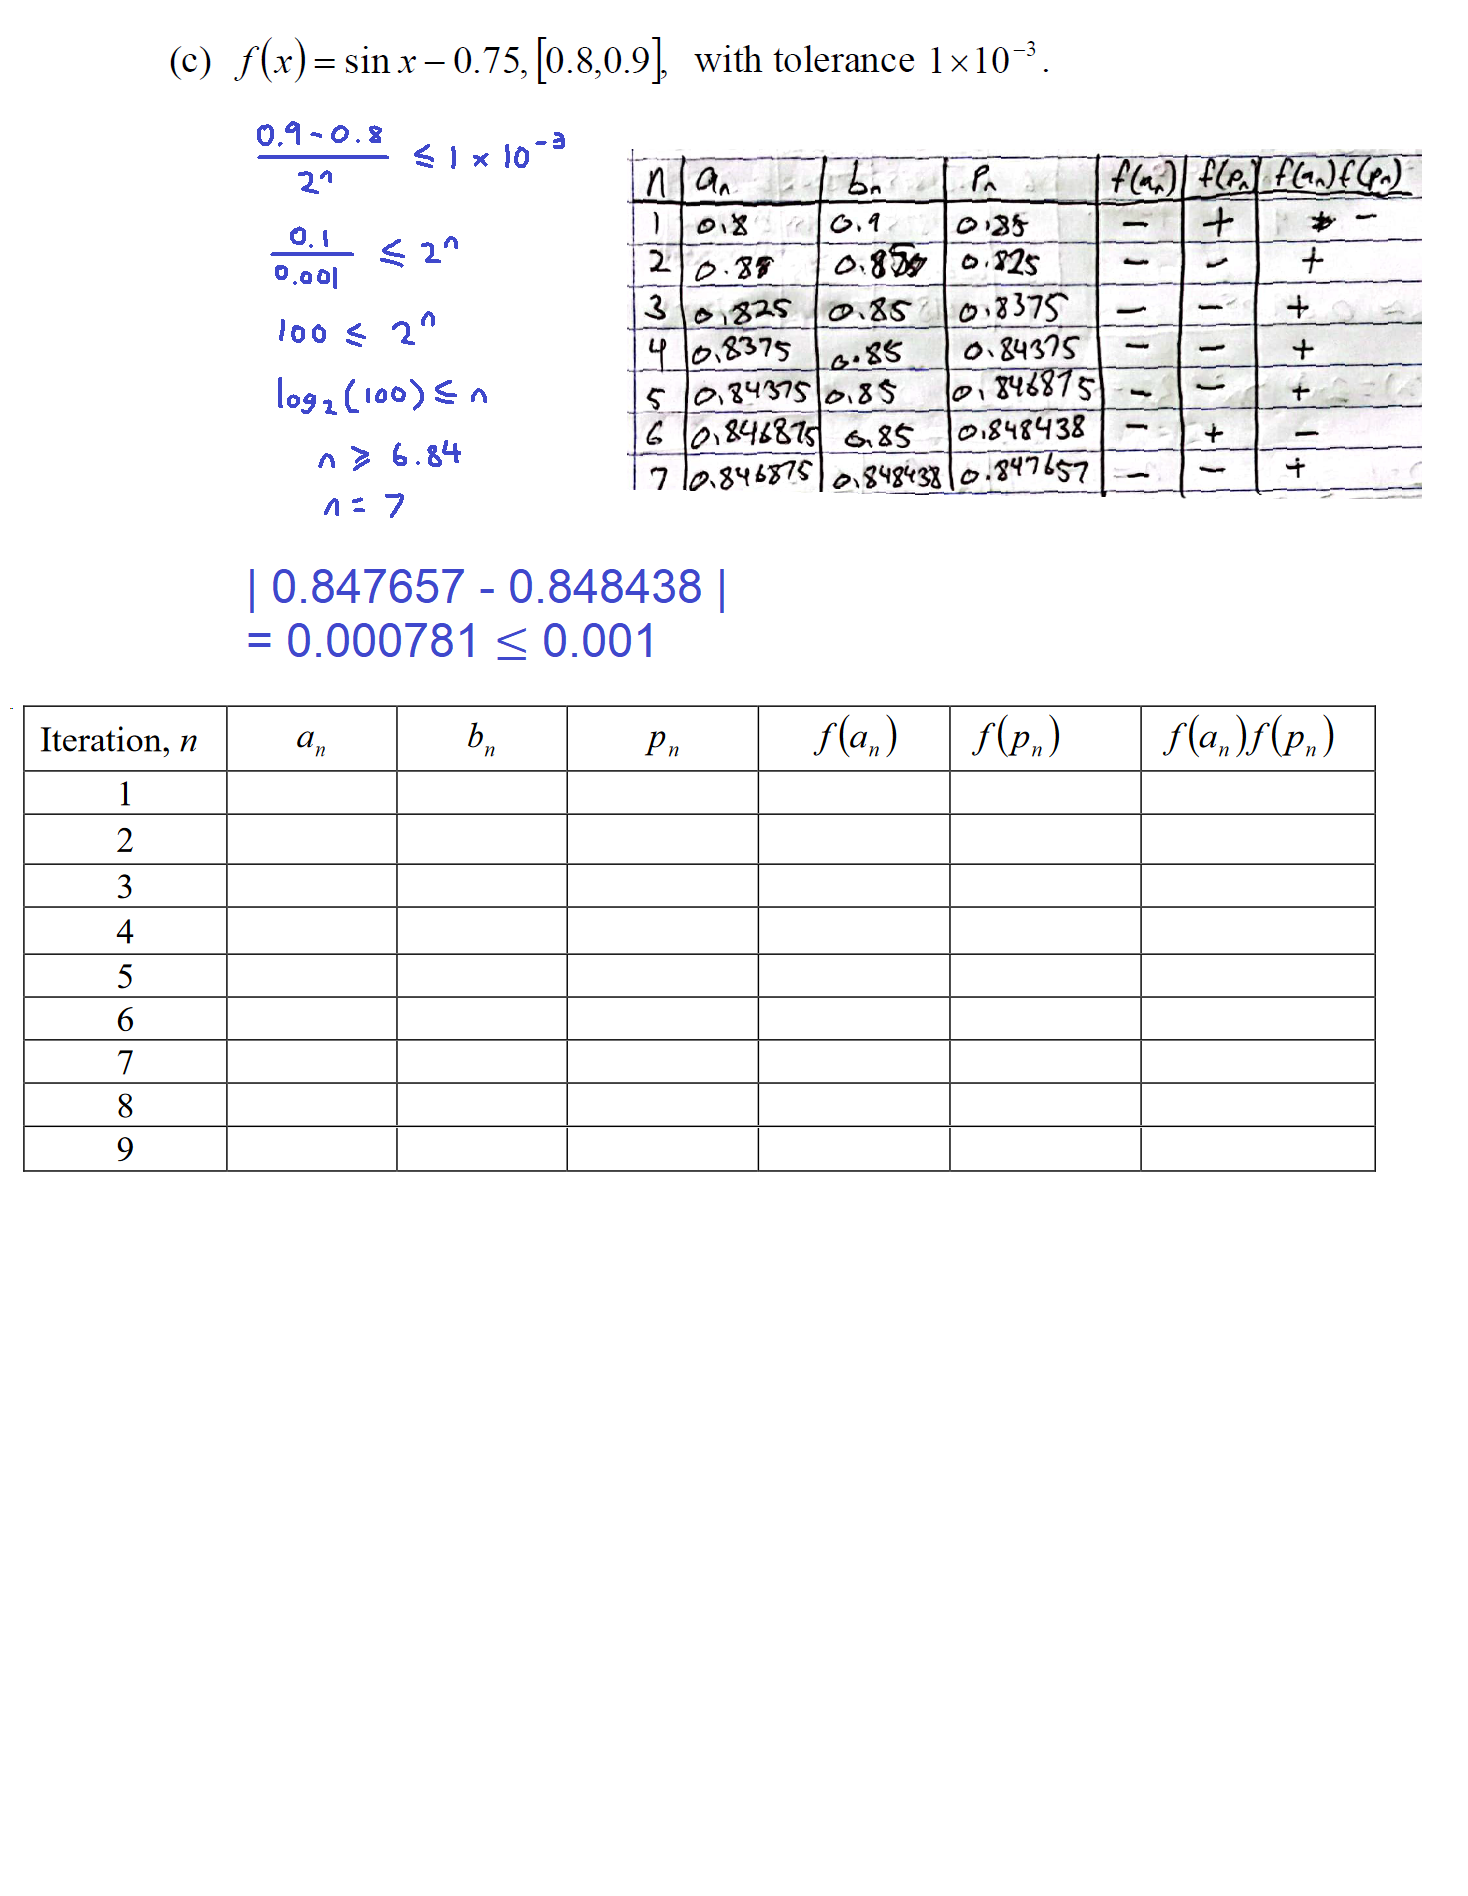 (c) f(x) = sin x − 0.75, [0.8,0.9], with tolerance 1×10⁻³.
0.9-0.8
2ⁿ
≤ 1 × 10⁻³
0.1
0.001
≤ 2ⁿ
100 ≤ 2ⁿ
log₂(100) ≤ n
n ≥ 6.84
n = 7
n aₙ bₙ Pₙ f(aₙ) f(Pₙ) f(aₙ)f(Pₙ)
1 0.8 0.9 0.85 − + −
2 0.825 − − +
3 0.825 0.85 0.8375 − − +
4 0.8375 0.85 0.84375 − − +
5 0.84375 0.85 0.846875 − − +
6 0.846875 0.85 0.848438 − + −
7 0.846875 0.848438 0.847657 − − +
| 0.847657 - 0.848438 |
= 0.000781 ≤ 0.001
Iteration, n aₙ bₙ pₙ f(aₙ) f(pₙ) f(aₙ)f(pₙ)
1
2
3
4
5
6
7
8
9